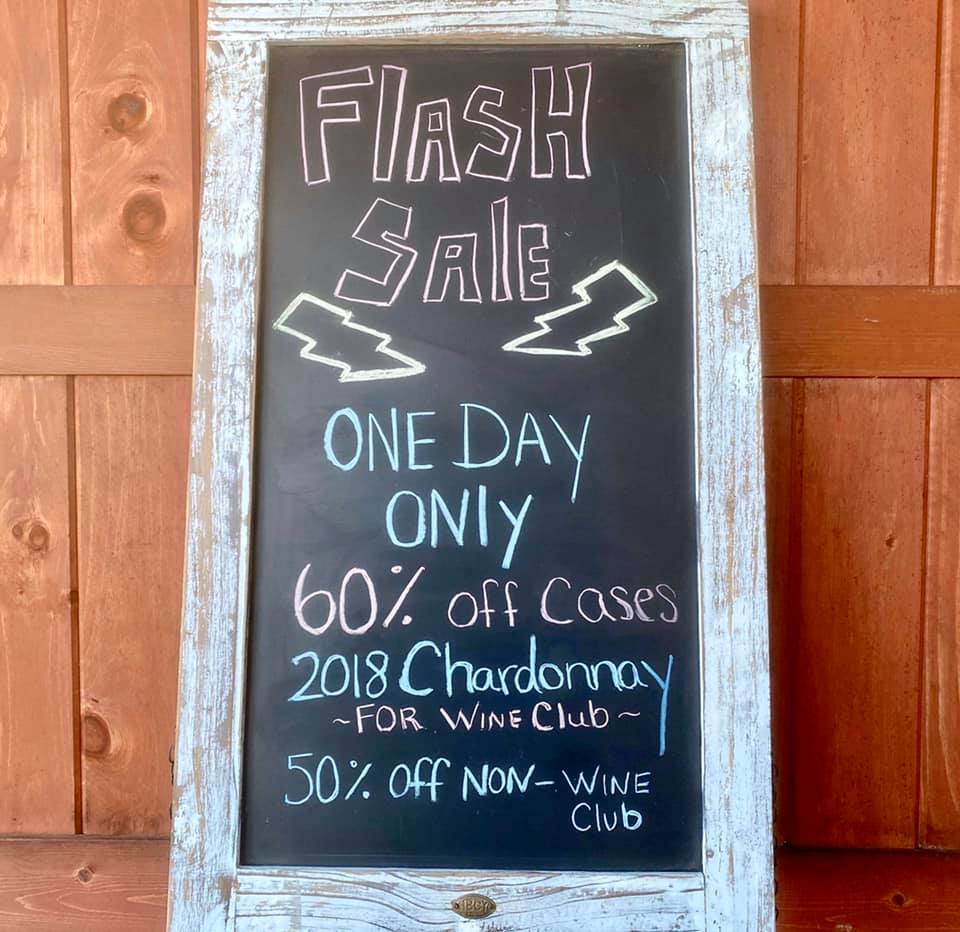 FlASH
SAlE
ONE DAY
ONly
60% off Cases
2018 Chardonnay
~FOR WINE Club~
50% Off NON-WINE
Club